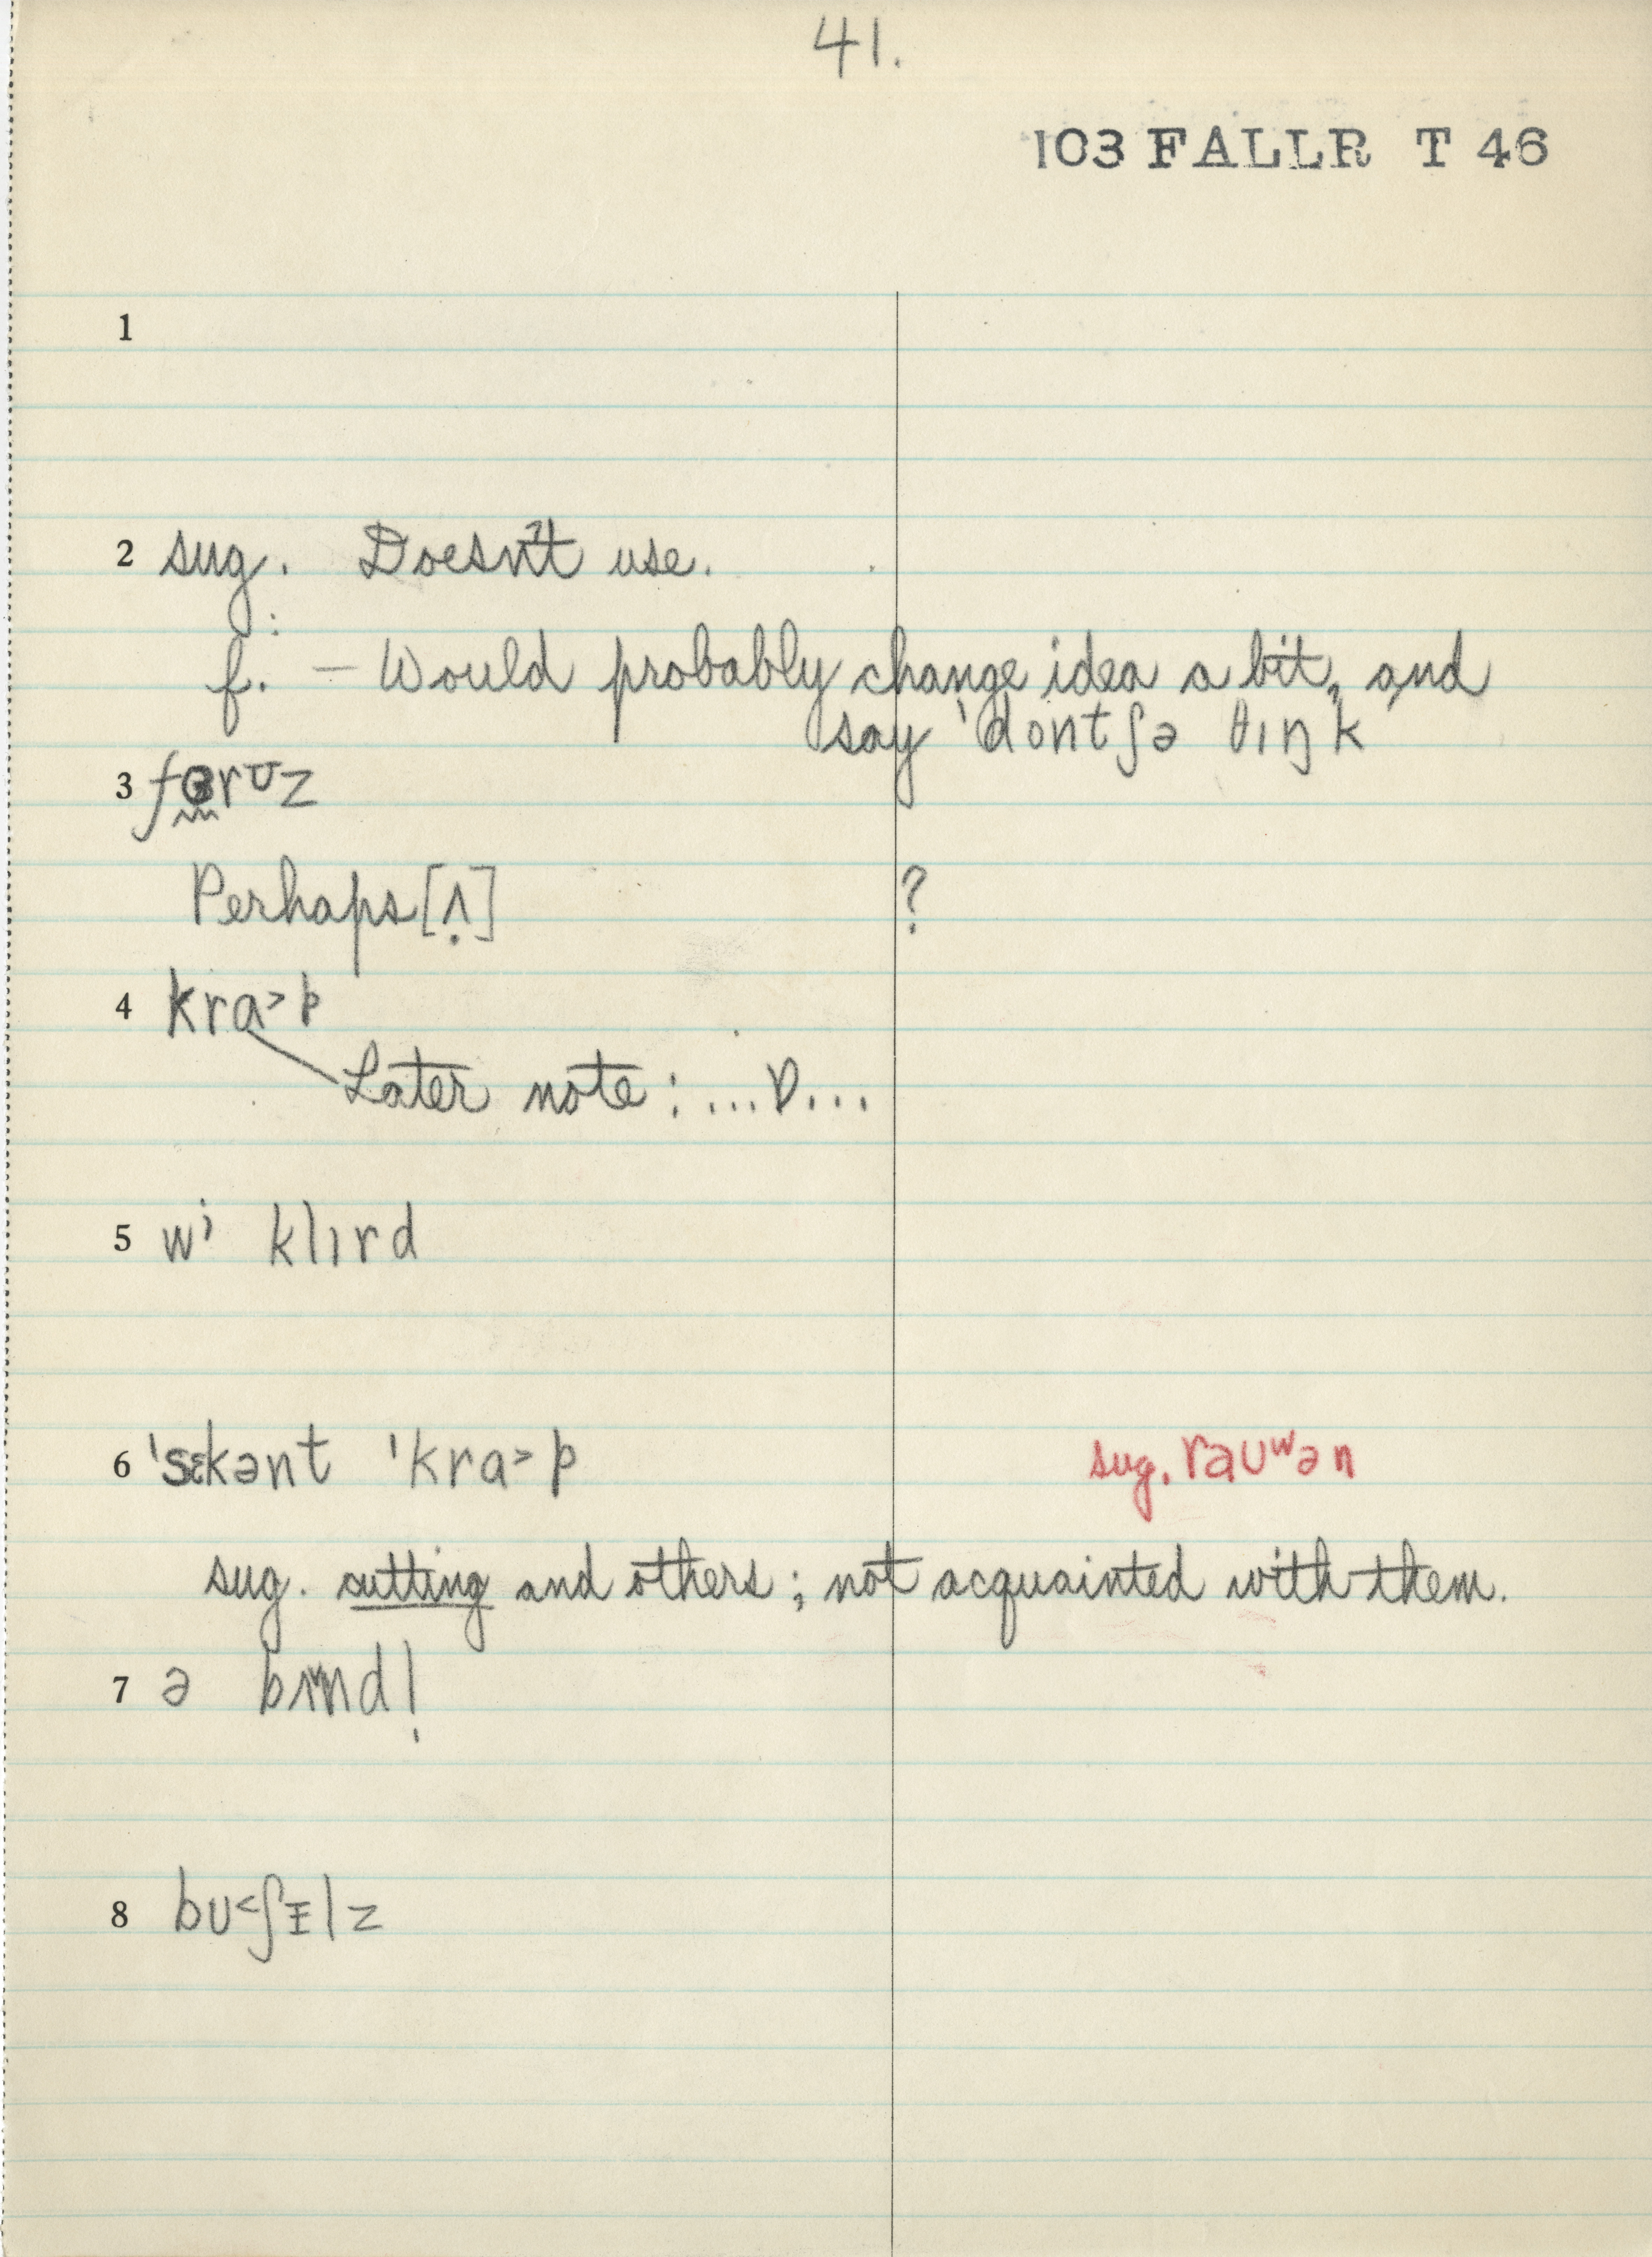 41.
103 FALLR T 46
1
2 sug. Doesn't use.
f. — Would probably change idea a bit, and
say 'dontʃə θɪŋk
3 fɵrᴜz
Perhaps [ʌ̣] ?
4 kra˃p
Later note: ...ɒ...
5 wi klɪrd
6 'sɛkənt 'kra˃p sug. rauʷən
sug. cutting and others; not acquainted with them.
7 ə baɪnd|̩
8 bʊ˂ʃɪlz